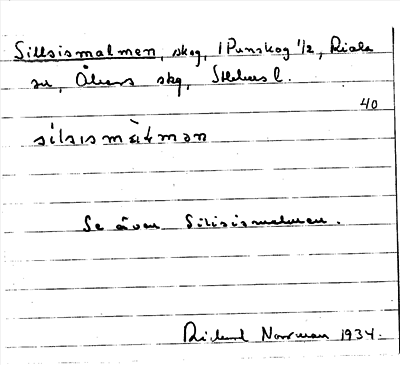 Sillsismalmen, skog, 1 Punskog 1/2, Riala
sn, Åkers skg, Sthlms l.
40
silsismàlmən
Se även Silisismalmen.
Rickard Norrman 1934.